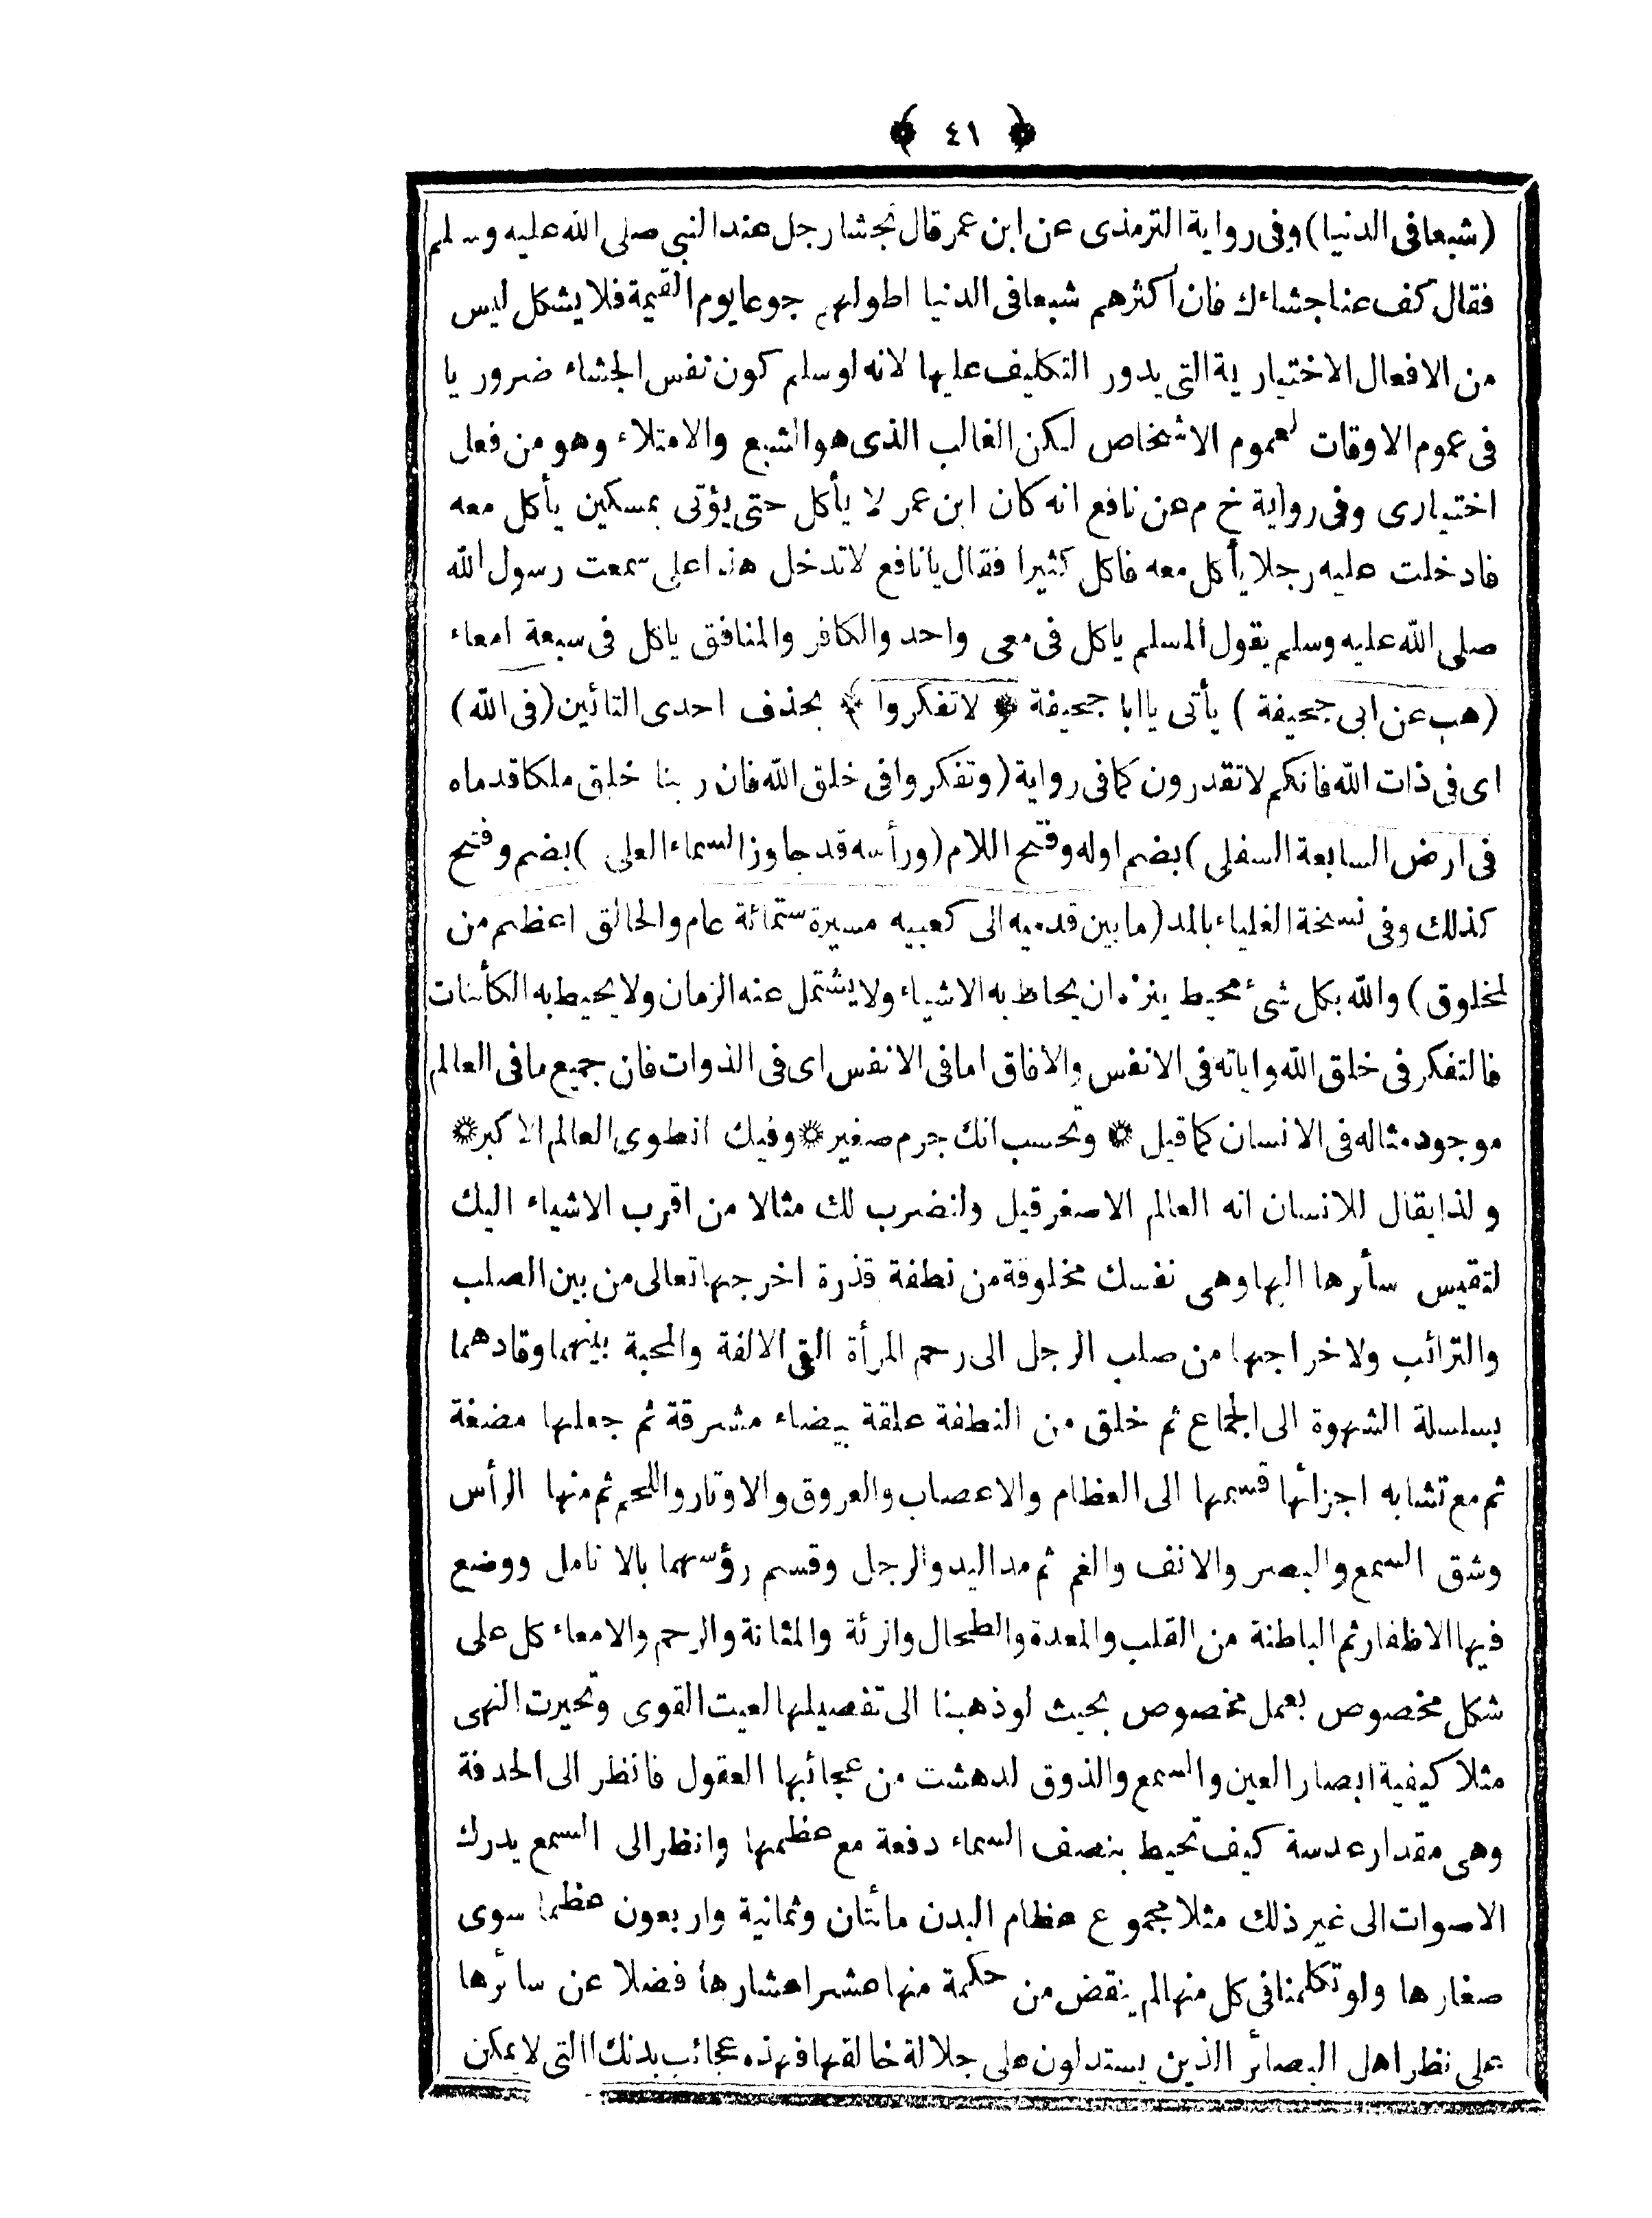 ﴿ ٤١ ﴾
(شبعا فى الدنيا) وفى رواية الترمذى عن ابن عمر قال تجشا رجل عند النبى صلى الله عليه وسلم
فقال كف عنا جشاءك فان اكثرهم شبعا فى الدنيا اطولهم جوعا يوم القيمة فلا يشكل ليس
من الافعال الاختيارية التى يدور التكليف عليها لانه لو سلم كون نفس الجشاء ضروريا
فى عموم الاوقات لعموم الاشخاص لكن الغالب الذى هو الشبع والامتلاء وهو من فعل
اختيارى وفى رواية خ م عن نافع انه كان ابن عمر لا يأكل حتى يؤتى بمسكين يأكل معه
فادخلت عليه رجلا يأكل معه فاكل كثيرا فقال يا نافع لا تدخل هذا على سمعت رسول الله
صلى الله عليه وسلم يقول المسلم ياكل فى معى واحد والكافر والمنافق ياكل فى سبعة امعاء
(هب عن ابى جحيفة) يأتى يا ابا جحيفة ﴿ لا تفكروا ﴾ بحذف احدى التائين (فى الله)
اى فى ذات الله فانكم لا تقدرون كما فى رواية (وتفكروا فى خلق الله فان ربنا خلق ملكا قدماه
فى ارض السابعة السفلى) بضم اوله وفتح اللام (ورأسه قد جاوز السماء العلى) بضم وفتح
كذلك وفى نسخة الغلياء بالمد (ما بين قدميه الى كعبيه مسيرة ستمائة عام والخالق اعظم من
لمخلوق) والله بكل شئ محيط ينزه ان يحاط به الاشياء ولا يشتمل عنه الزمان ولا يحيط به الكأنات
فالتفكر فى خلق الله واياته فى الانفس والافاق اما فى الانفس اى فى الذوات فان جميع ما فى العالم
موجود مثاله فى الانسان كما قيل * وتحسب انك جرم صغير * وفيك انطوى العالم الاكبر *
ولذا يقال للانسان انه العالم الاصغر قيل ولنضرب لك مثالا من اقرب الاشياء اليك
لتقيس سأرها اليها وهى نفسك مخلوقة من نطفة قذرة اخرجها تعالى من بين الصلب
والترائب ولاخراجها من صلب الرجل الى رحم المرأة القى الالفة والمحبة بينهما وقادهما
بسلسلة الشهوة الى الجماع ثم خلق من النطفة علقة بيضاء مشرقة ثم جعلها مضغة
ثم مع تشابه اجزائها قسمها الى العظام والاعصاب والعروق والاوتار واللحم ثم منها الرأس
وشق السمع والبصر والانف والفم ثم مد اليد والرجل وقسم رؤسهما بالانامل ووضع
فيها الاظفار ثم الباطنة من القلب والمعدة والطحال والرئة والمثانة والرحم والامعاء كل على
شكل مخصوص بعمل مخصوص بحيث لو ذهبنا الى تفصيلها لعيت القوى وتحيرت النهى
مثلا كيفية ابصار العين والسمع والذوق لدهشت من عجائبها العقول فانظر الى الحدقة
وهى مقدار عدسة كيف تحيط بنصف السماء دفعة مع عظمها وانظر الى السمع يدرك
الاصوات الى غير ذلك مثلا مجموع عظام البدن مائتان وثمانية واربعون عظما سوى
صغارها ولو تكلمنا فى كل منها لم ينقض من حكمة منها عشر اعشارها فضلا عن سائرها
على نظر اهل البصائر الذين يستدلون على جلالة خالقها فهذه عجائب بدنك التى لا يمكن